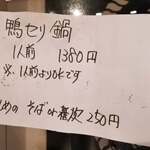 鴨セリ鍋
1人前 1380円
※、1人前よりOKです
〆めの そば or 雑炊 250円